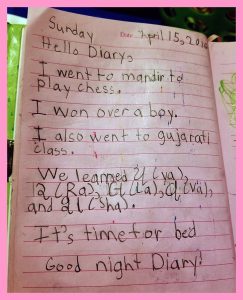 Sunday Date April 15,
Hello Diary,
I went to mandir to
play chess.
I won over a boy.
I also went to gujarati
class.
We learned ય (ya),
ર (Ra), લ (La), વ (Va),
and શ (sha).
It's time for bed
Good night Diary!